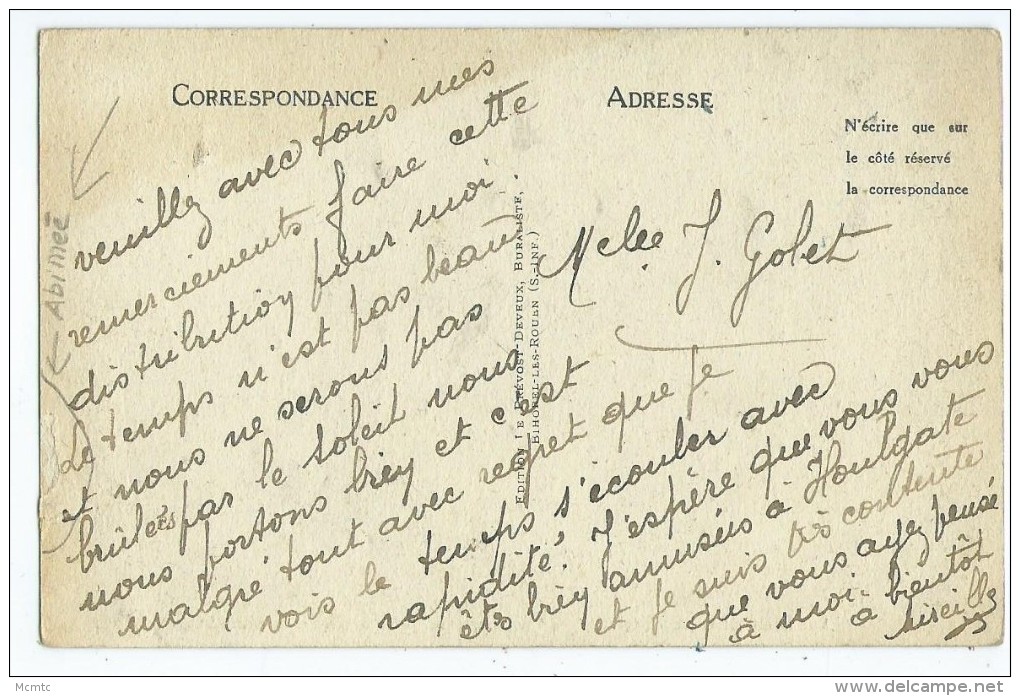 CORRESPONDANCE
ADRESSE
N'écrire que sur
le côté réservé
la correspondance
Abimée
veuillez avec tous mes
remerciements faire cette
distribution pour moi.
Le temps n'est pas beau
et nous ne serons pas
brulées par le soleil nous
nous portons bien et c'est
malgré tout avec regret que je
vois le temps s'écouler avec
rapidité. J'espère que vous vous
êtes bien amusées à Houlgate
et je suis très contente
que vous ayez pensé
à moi.
a bientôt
Mireille
Melle J. Golet
EDITION E PRÉVOST-DEVEUX, BURALISTE,
BIHOREL-LES-ROUEN (S.-INF.)
Mcmtc
delcampe.net